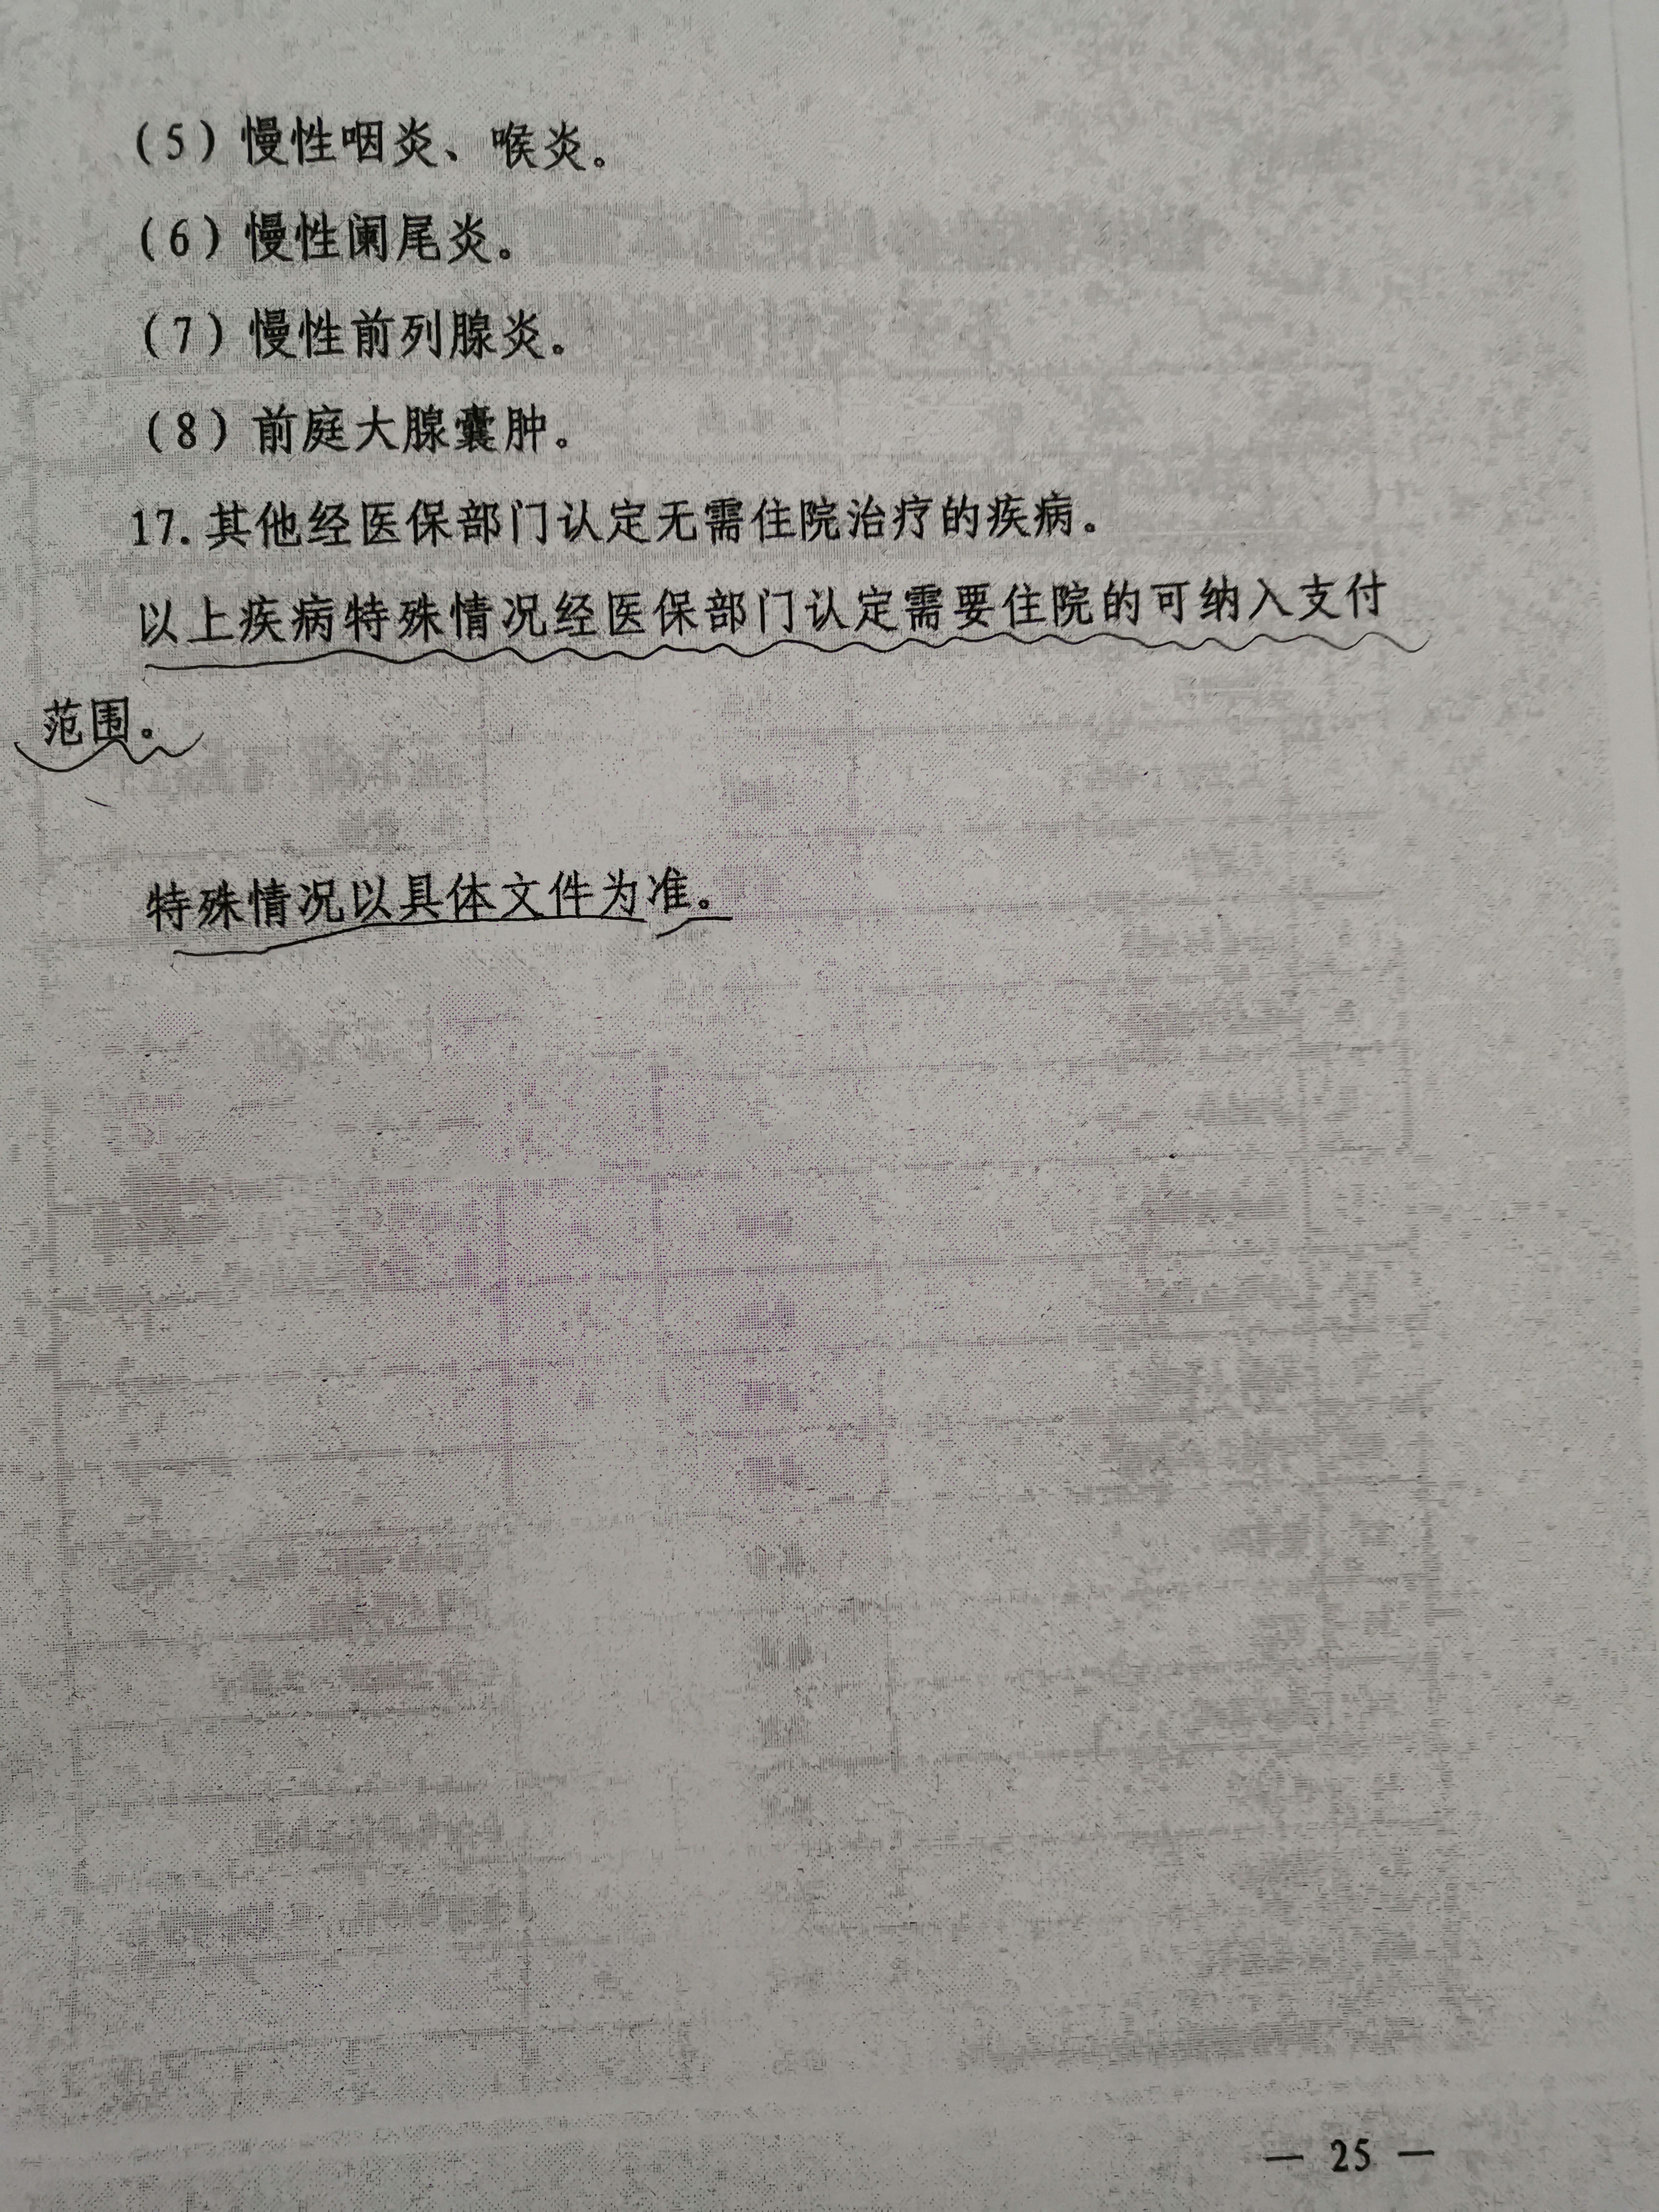 （5）慢性咽炎、喉炎。
（6）慢性阑尾炎。
（7）慢性前列腺炎。
（8）前庭大腺囊肿。
17.其他经医保部门认定无需住院治疗的疾病。
以上疾病特殊情况经医保部门认定需要住院的可纳入支付
范围。
特殊情况以具体文件为准。
— 25 —